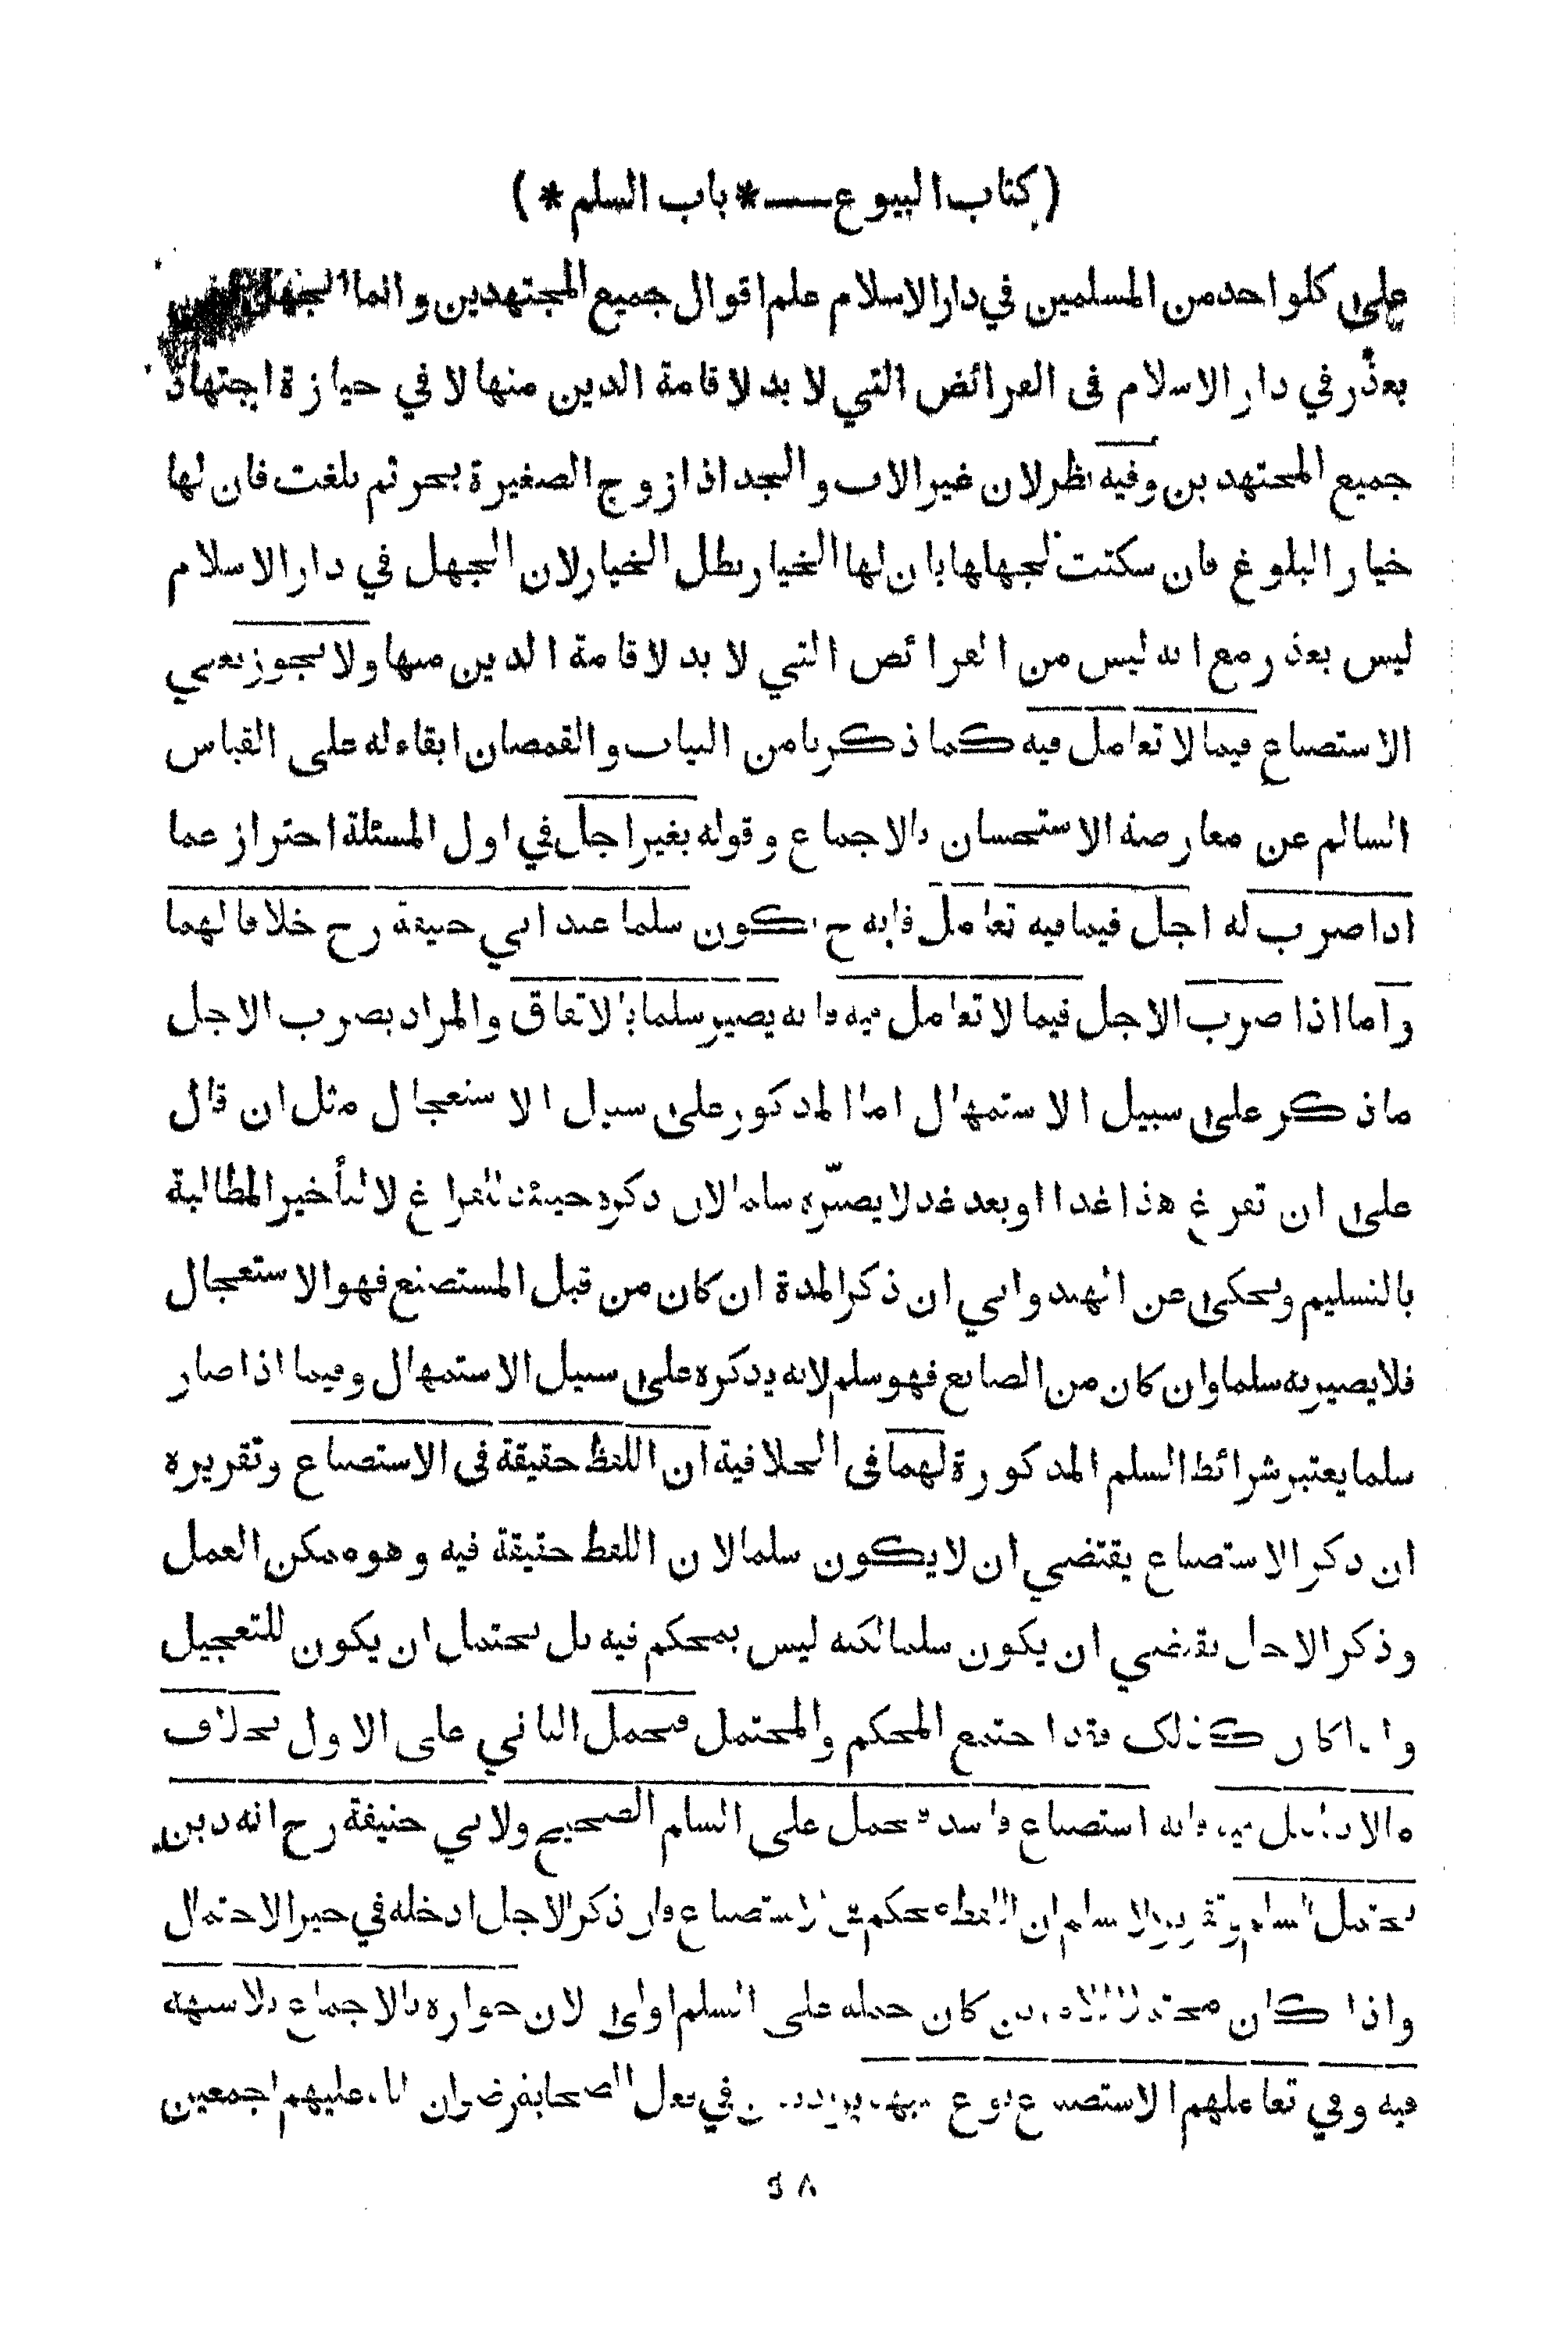 ( كتاب البيوع — * باب السلم * )
على كل واحد من المسلمين في دار الاسلام علم اقوال جميع المجتهدين وانما الجهل ليس
بعذر في دار الاسلام فى الفرائض التي لا بد لاقامة الدين منها لا في حيازة اجتهاد
جميع المجتهدين وفيه نظر لان غير الاب والجد اذا زوج الصغيرة بحر ثم بلغت فان لها
خيار البلوغ فان سكتت لجهلها بان لها الخيار بطل الخيار لان الجهل في دار الاسلام
ليس بعذر مع انه ليس من الفرائض التي لا بد لاقامة الدين منها ولا يجوز يعني
الاستصناع فيما لا تعامل فيه كما ذكرنا من الثياب والقمصان ابقاء له على القياس
السالم عن معارضة الاستحسان بالاجماع وقوله بغير اجل في اول المسئلة احتراز عما
اذا ضرب له اجل فيما فيه تعامل فانه ح يكون سلما عند ابي حنيفة رح خلافا لهما
واما اذا ضرب الاجل فيما لا تعامل فيه فانه يصير سلما بالاتفاق والمراد بضرب الاجل
ما ذكر على سبيل الاستمهال اما المذكور على سبيل الاستعجال مثل ان قال
على ان تفرغ هذا غدا او بعد غد لا يصيّره سلما لان ذكره حينئذ للفراغ لا لتأخير المطالبة
بالتسليم ويحكى عن الهندواني ان ذكر المدة ان كان من قبل المستصنع فهو الاستعجال
فلا يصير به سلما وان كان من الصانع فهو سلم لانه يذكره على سبيل الاستمهال وفيما اذا صار
سلما يعتبر شرائط السلم المذكورة لهما فى الخلافية ان اللفظ حقيقة فى الاستصناع وتقريره
ان ذكر الاستصناع يقتضي ان لا يكون سلما لان اللفظ حقيقة فيه وهو ممكن العمل
وذكر الاجل يقتضي ان يكون سلما لكنه ليس بمحكم فيه بل يحتمل ان يكون للتعجيل
واذا كان كذلك فقد اجتمع المحكم والمحتمل فيحمل الثاني على الاول بخلاف
ما لا تعامل فيه فانه استصناع فاسد فيحمل على السلم الصحيح ولابي حنيفة رح انه دين
يحتمل السلم وتقريره لا سلم ان اللفظ محكم في الاستصناع فان ذكر الاجل ادخله في حيز الاحتمال
واذا كان محتملا للامرين كان حمله على السلم اولى لان جوازه بالاجماع بلا شبهة
فيه وفي تعاملهم الاستصناع نوع شبهة في فعل الصحابة رضوان الله عليهم اجمعين
٤٨